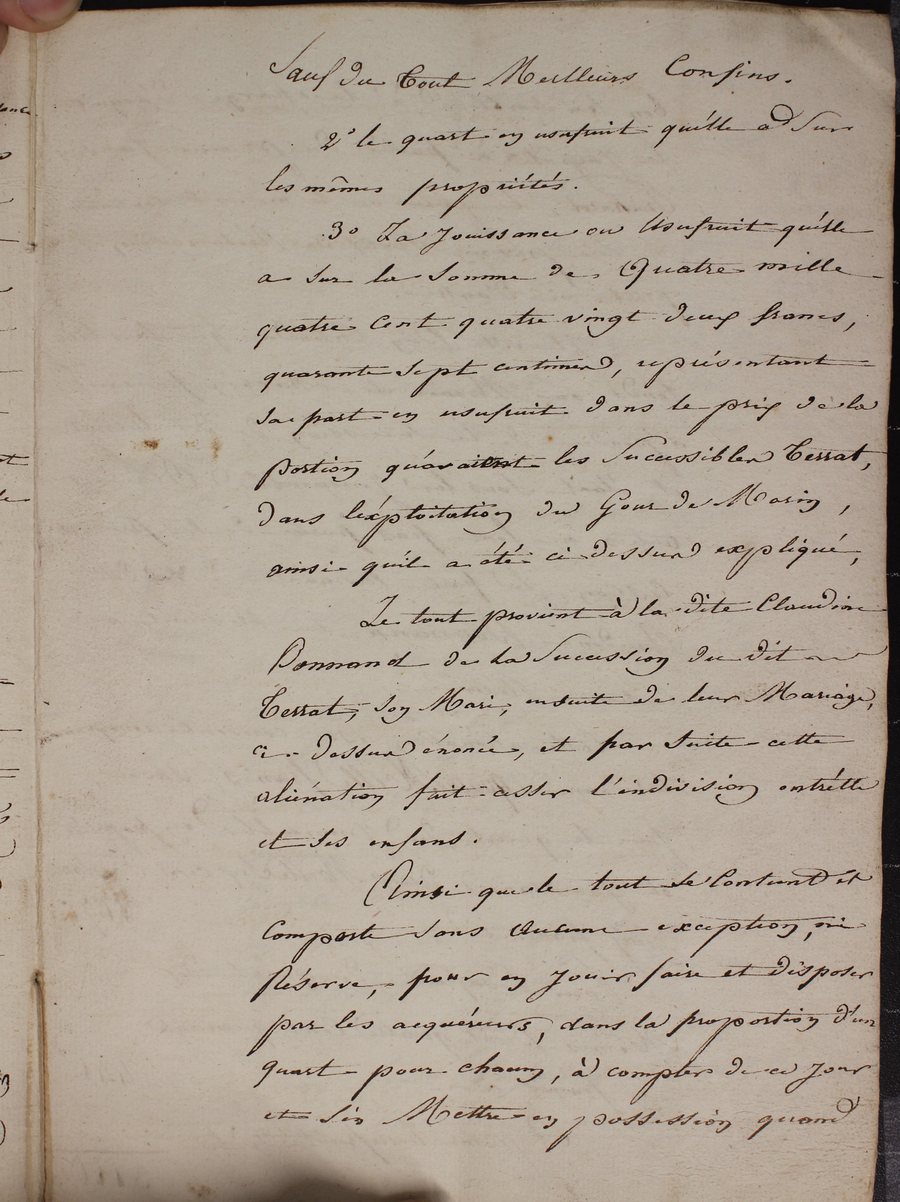 Sauf du tout Meilleurs Confins.
2° le quart en usufruit qu'elle a sur
les mêmes propriétés.
3° La Jouissance ou Usufruit qu'elle
a sur la somme de Quatre mille
quatre cent quatre vingt deux francs,
quarante sept centimes, représentant
sa part en usufruit dans le prix de la
portion qu'avaient les Successibles Terrat,
dans l'éxploitation du Gour de Marin,
ainsi qu'il a été ci dessus expliqué,
Le tout provient à la dite Claudine
Bonnand de la Succession du dit
Terrat, son Mari, ensuite de leur Mariage,
ci-dessus énoncé, et par suite cette
aliénation fait cesser l'indivision entr'elle
et ses enfans.
Ainsi que le tout se Contient et
Comporte sans Aucune exception, ni
Réserve, pour en Jouir faire et disposer
par les acquéreurs, dans la proportion d'un
quart pour chacun, à compter de ce jour
et s'en Mettre en possession quand